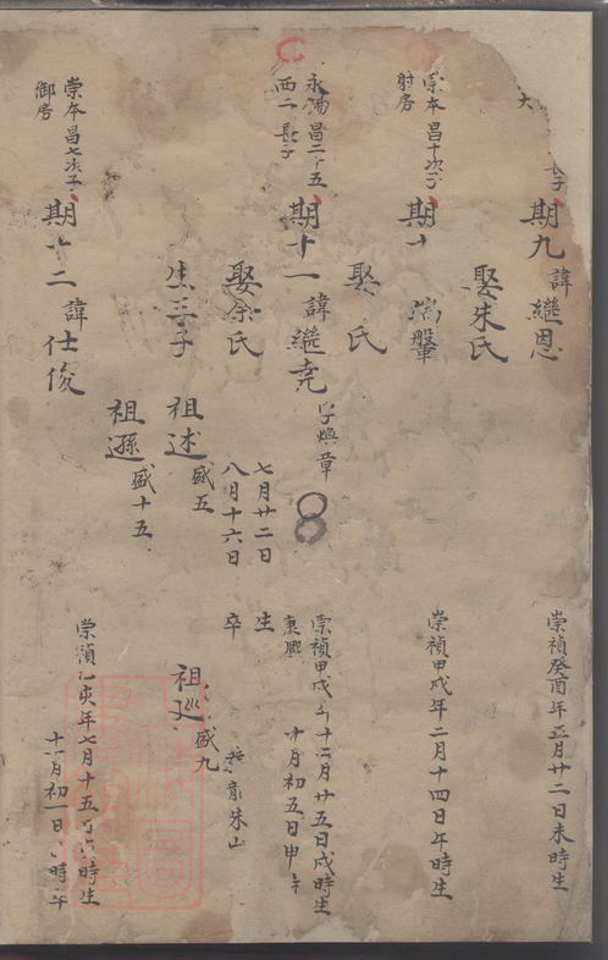 大
長子
期九 諱繼恩
崇禎癸酉年正月廿二日未時生
娶朱氏
崇本 昌十次子
射房
期十
崇禎甲戌年二月十四日午時生
娶 氏
永陽 昌二十五
西二 長子
期十一 諱繼堯 字煥章
崇禎甲戌年十二月廿五日戌時生
康熙 十月初五日申
娶余氏
七月廿二日 生
八月十六日 卒
朱山
生三子
祖述 盛五
祖巡 盛九
祖遜 盛十五
崇本 昌七次子
御房
期十二 諱仕俊
崇禎乙亥年七月十五 時生
月初一日 時